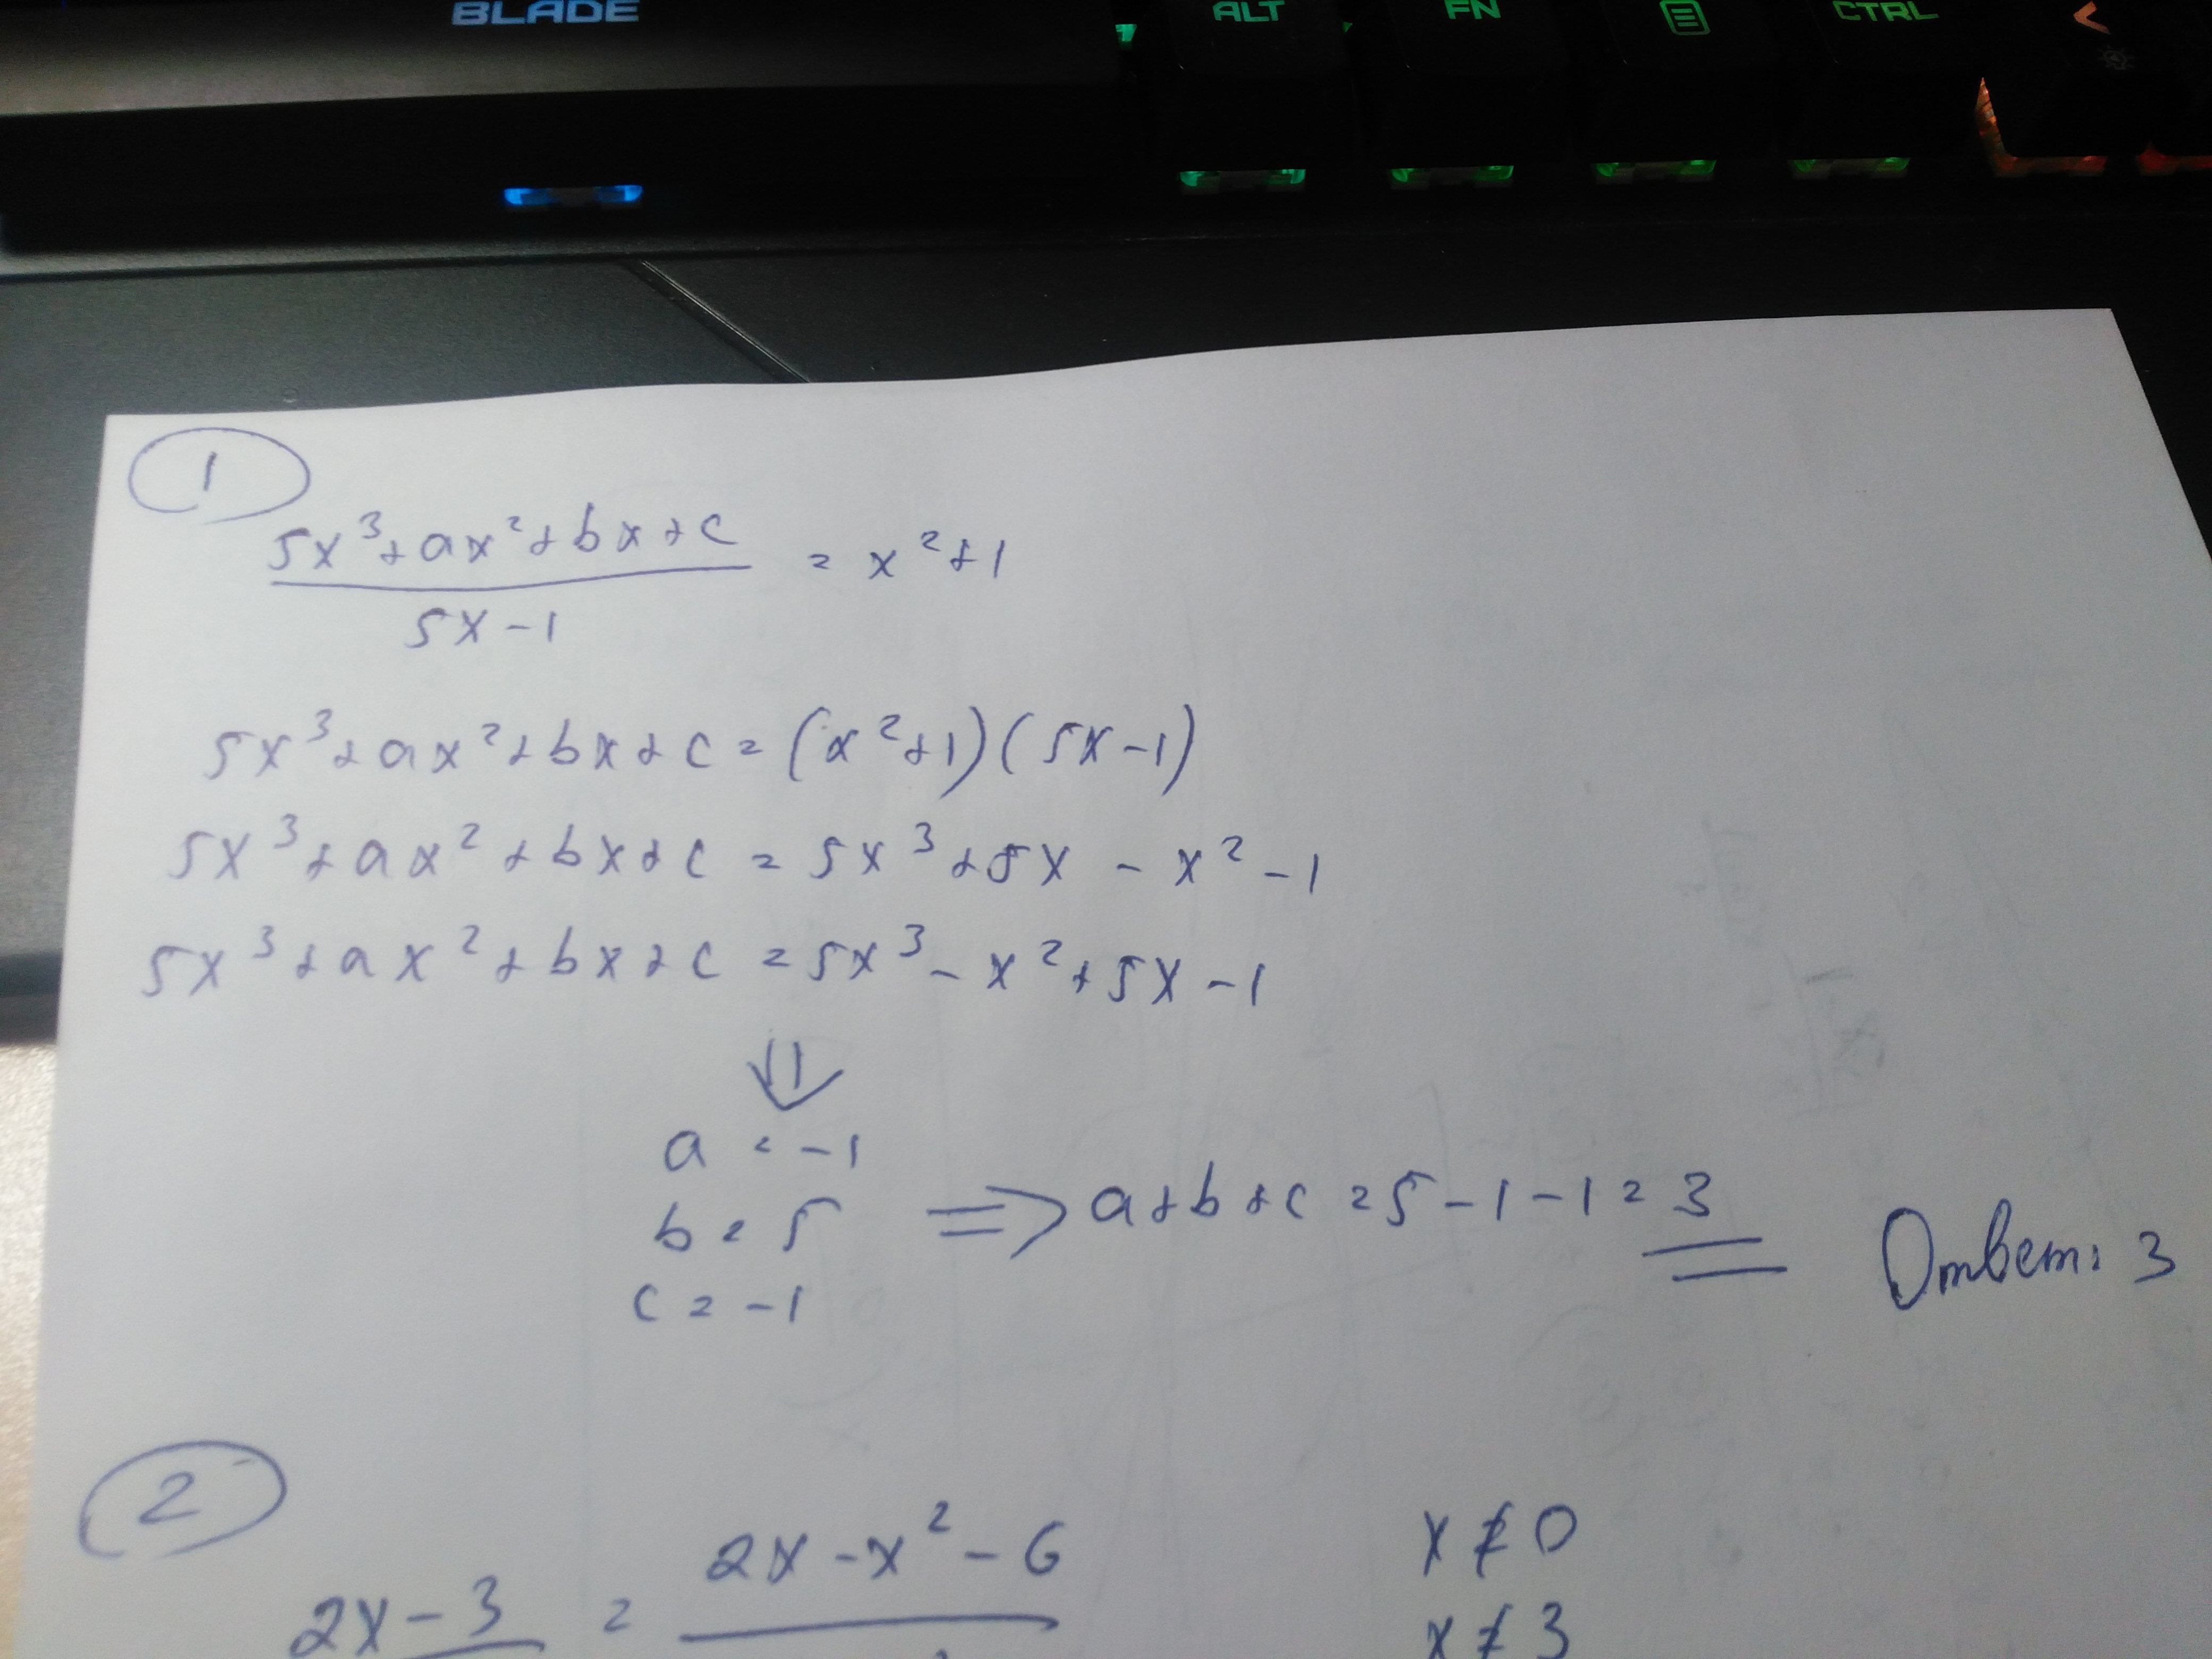 BLADE
ALT FN CTRL <
1
5x³+ax²+bx+c / 5x-1 = x²+1
5x³+ax²+bx+c=(x²+1)(5x-1)
5x³+ax²+bx+c=5x³+5x-x²-1
5x³+ax²+bx+c=5x³-x²+5x-1
⇓
a=-1
b=5 ⇒ a+b+c=5-1-1=3
c=-1
Ответ: 3
2
2x-3 = 2x-x²-6
x≠0
x≠3